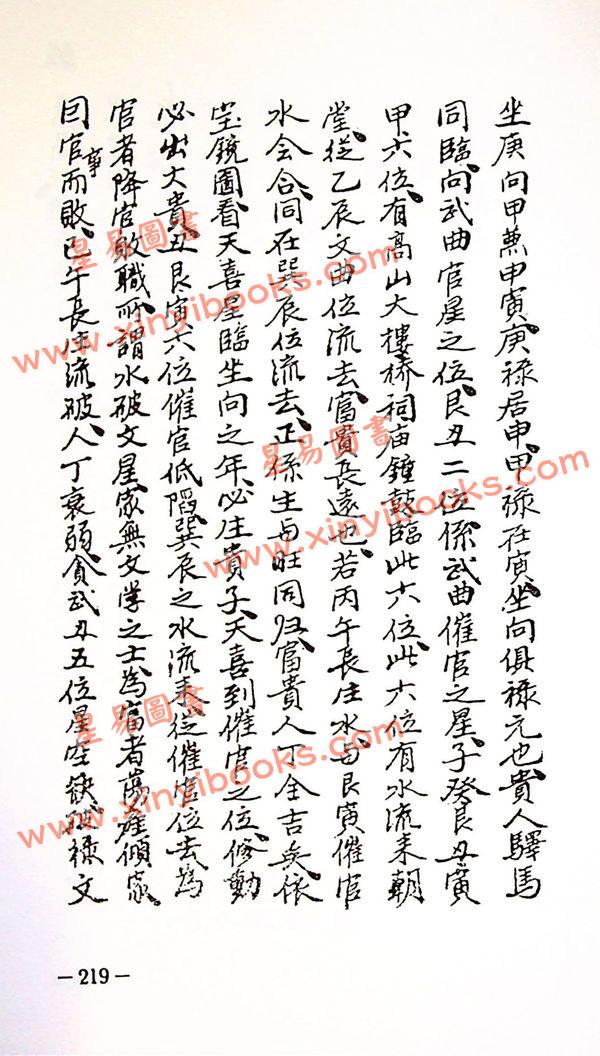 坐庚向甲兼申寅庚祿居申甲祿在寅坐向俱祿元也貴人驛馬
同臨向武曲官星之位艮丑二位係武曲催官之星子癸艮丑寅
甲六位有高山大樓橋祠庙鐘鼓臨此六位此六位有水流来朝
堂從乙辰文曲位流去富貴長遠也若丙午長生水与艮寅催官
水会合同在巽辰位流去正係生与旺同归富貴人丁全吉矣依
宝鏡圖看天喜星臨坐向之年必生貴子天喜到催官之位修動
必出大貴丑艮寅六位催官低陷巽辰之水流来從催官位去為
官者降官敗職所謂水破文星家無文学之士為富者蕩產傾家
因官事而敗巳午長生流破人丁衰弱貪武丑五位星空缺破祿文
－219－
星易圖書
www.xinyibooks.com
星易圖書
www.xinyibooks.com
星易圖書
www.xinyibooks.com